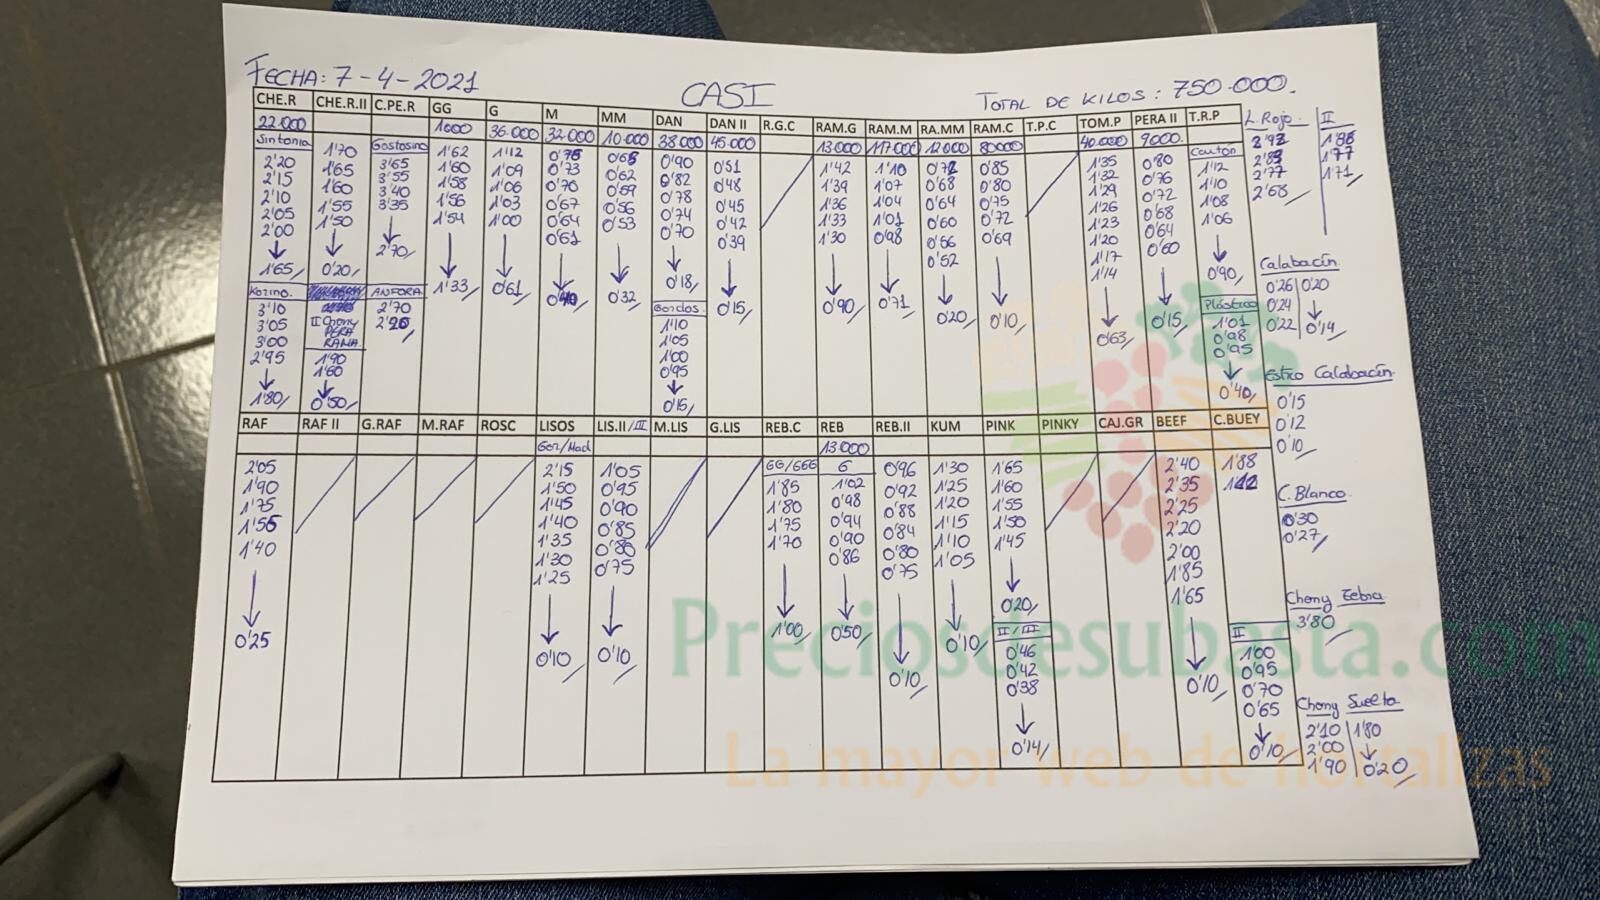 FECHA: 7-4-2021 CASI TOTAL DE KILOS: 750.000.
CHE.R CHE.R.II C.PE.R GG G M MM DAN DAN II R.G.C RAM.G RAM.M RA.MM RAM.C T.P.C TOM.P PERA II T.R.P
22.000 1000 36.000 32.000 10.000 38.000 45.000 13.000 117.000 12.000 80000 40.000 9000
Sintonia
2'20
2'15
2'10
2'05
2'00
1'65
Kozino.
3'10
3'05
3'00
2'95
1'80
1'70
1'65
1'60
1'55
1'50
0'20
II Chony
PERA
RAMA
1'90
1'60
0'50
Gostosino
3'65
3'55
3'40
3'35
2'70
ANFORA
2'70
1'62
1'60
1'58
1'56
1'54
1'33
1'12
1'09
1'06
1'03
1'00
0'61
0'76
0'73
0'70
0'67
0'64
0'61
0'65
0'62
0'59
0'56
0'53
0'32
0'90
0'82
0'78
0'74
0'70
0'18
Gordos
1'10
1'05
1'00
0'95
0'15
0'51
0'48
0'45
0'42
0'39
0'15
1'42
1'39
1'36
1'33
1'30
0'90
1'10
1'07
1'04
1'01
0'98
0'71
0'72
0'68
0'64
0'60
0'56
0'52
0'20
0'85
0'80
0'75
0'72
0'69
0'10
1'35
1'32
1'29
1'26
1'23
1'20
1'17
1'14
0'63
0'80
0'76
0'72
0'68
0'64
0'60
0'15
Cartón
1'12
1'10
1'08
1'06
0'90
Plástico
1'01
0'98
0'95
0'40
L. Rojo. II
2'92 1'86
2'83 1'77
2'77 1'71
2'68
Calabacín
0'26 0'20
0'24
0'22 0'14
Estro Calabacín
0'15
0'12
0'10
C. Blanco.
0'30
0'27
Chony Zebra
3'80
Chony Suelta
2'10 1'80
2'00
1'90 0'20
RAF RAF II G.RAF M.RAF ROSC LISOS LIS.II/III M.LIS G.LIS REB.C REB REB.II KUM PINK PINKY CAJ.GR BEEF C.BUEY
Gor/Mad 13.000
2'05
1'90
1'75
1'55
1'40
0'25
2'15
1'50
1'45
1'40
1'35
1'30
1'25
0'10
1'05
0'95
0'90
0'85
0'80
0'75
0'10
GG/GGG
1'85
1'80
1'75
1'70
1'00
G
1'02
0'98
0'94
0'90
0'86
0'50
0'96
0'92
0'88
0'84
0'80
0'75
0'10
1'30
1'25
1'20
1'15
1'10
1'05
0'10
1'65
1'60
1'55
1'50
1'45
0'20
II/III
0'46
0'42
0'38
0'14
2'40
2'35
2'25
2'20
2'00
1'85
1'65
0'10
1'88
II
1'00
0'95
0'70
0'65
0'10
Preciosdesubasta.com
La mayor web de hortalizas